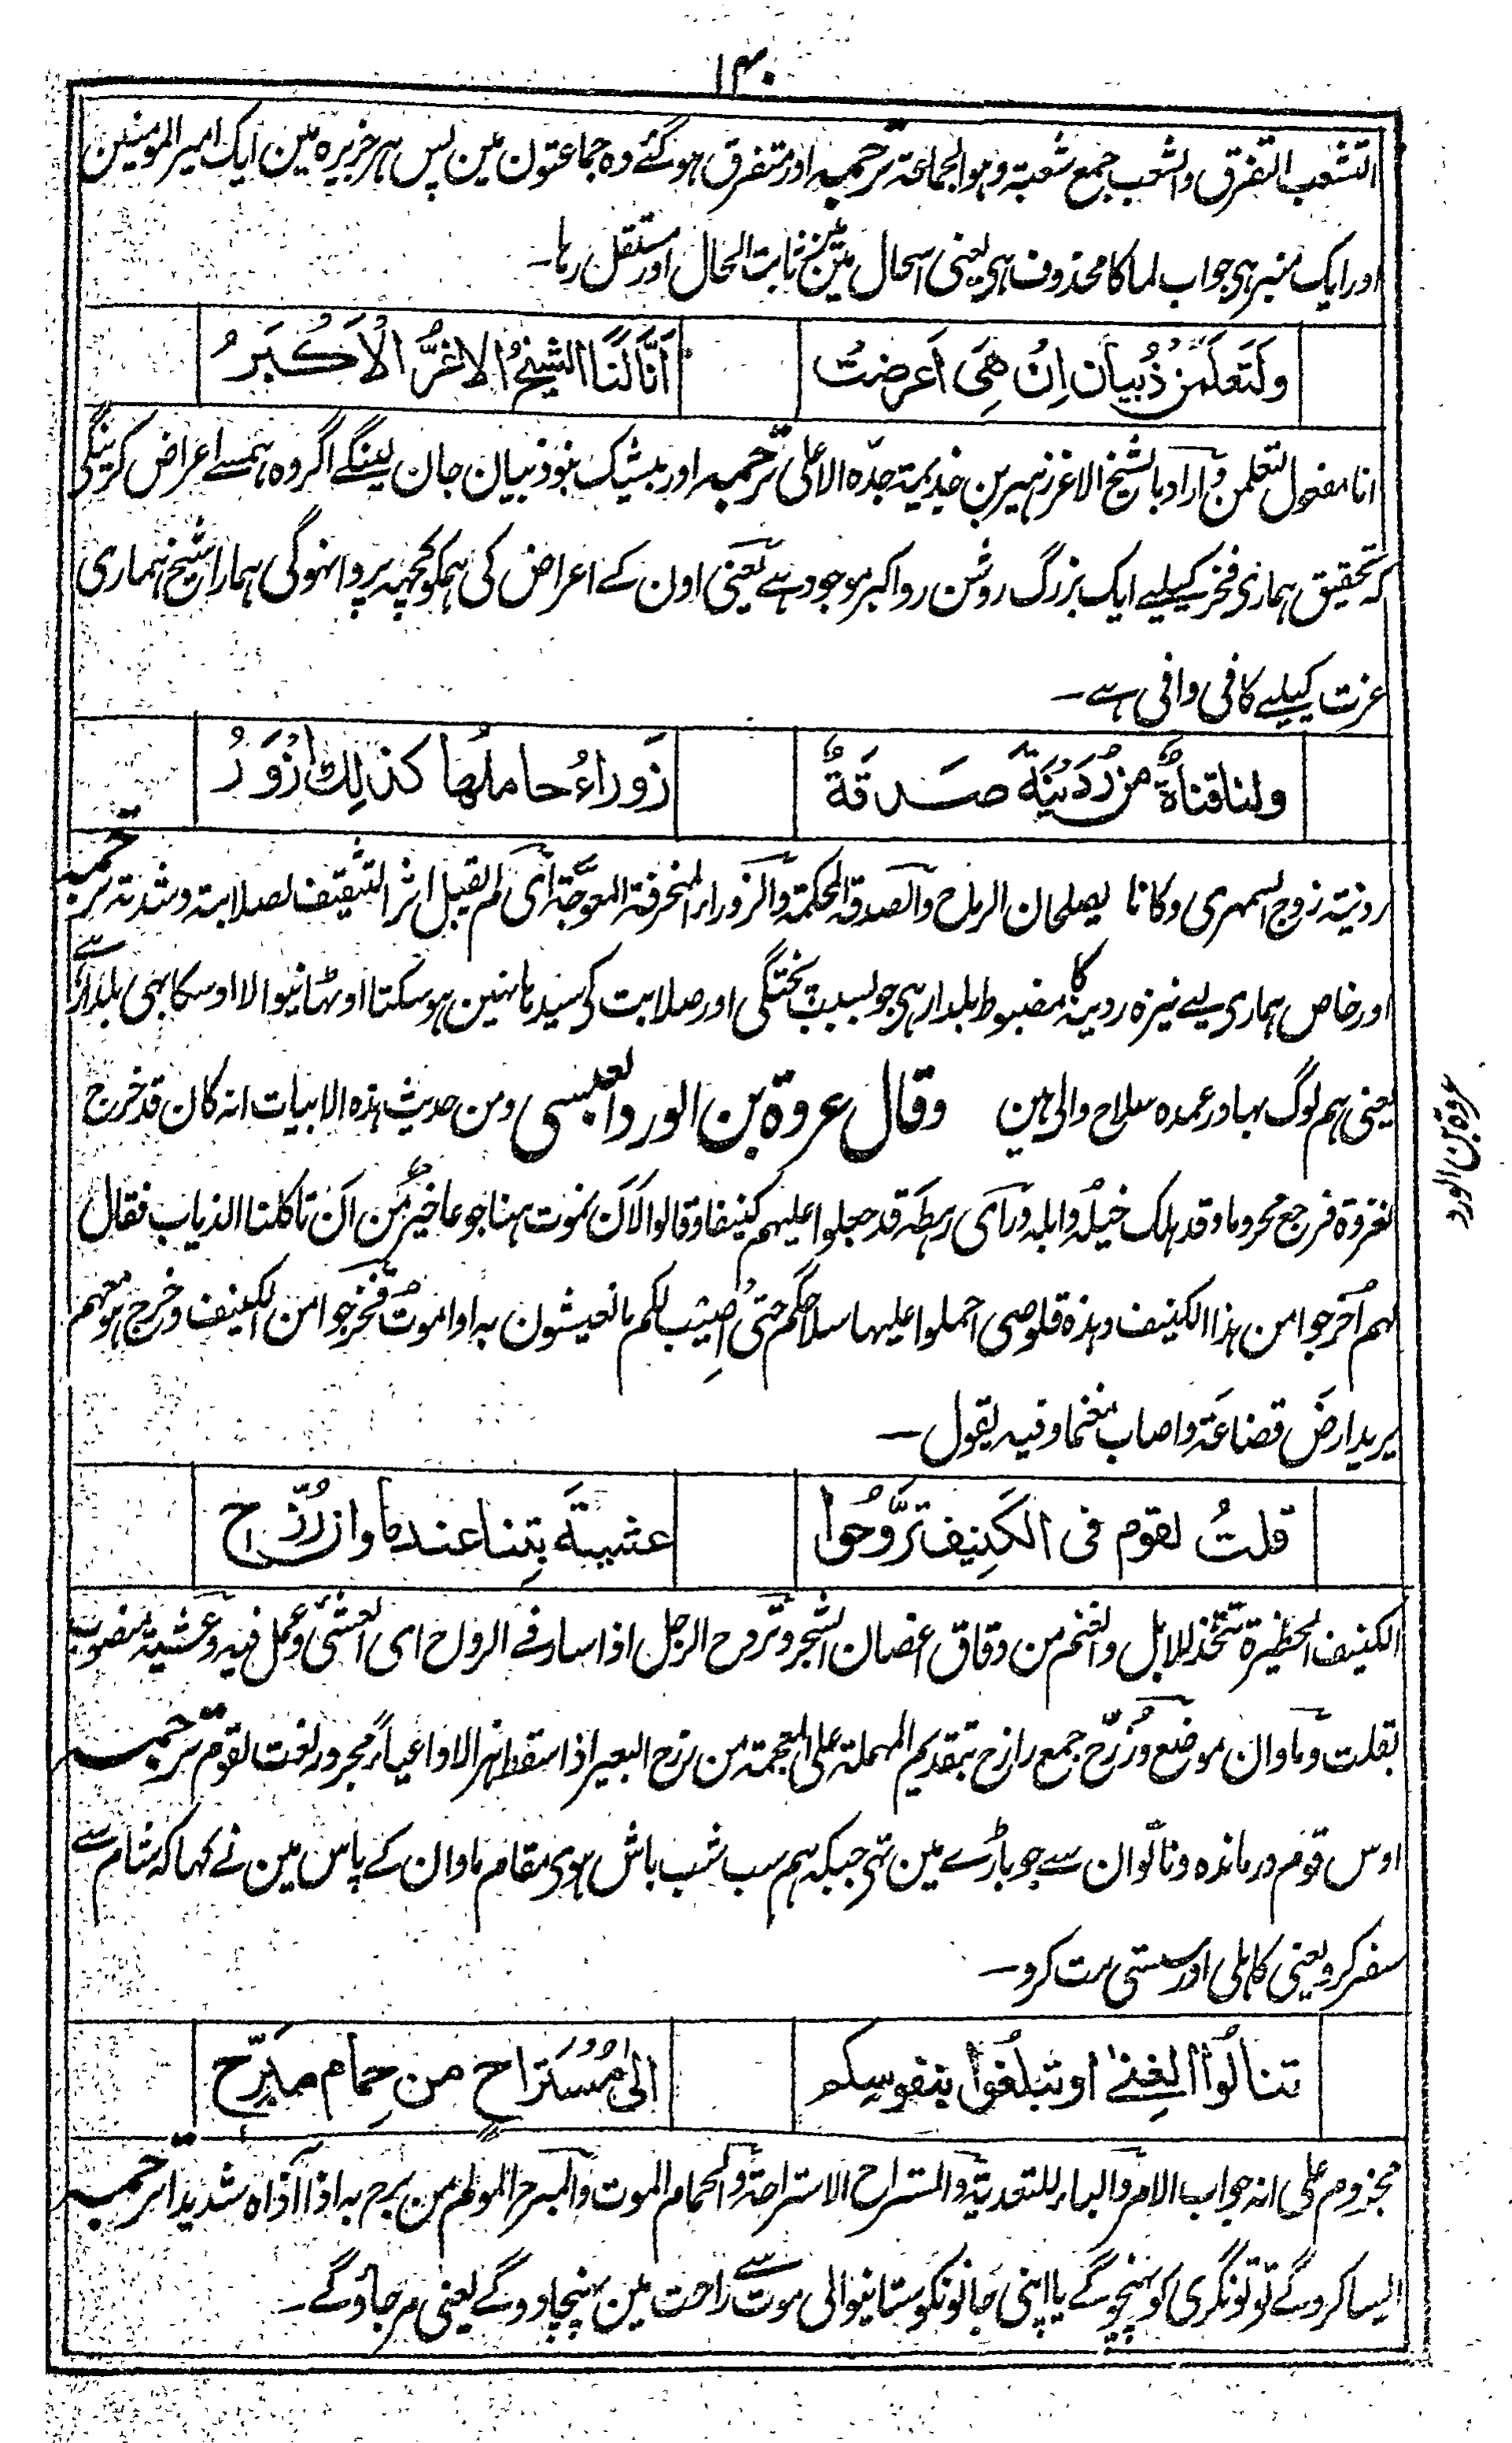 ۱۴۰
التشعب التفرق والشعب جمع شعبۃ وہو الجماعۃ ترجمہ اور متفرق ہو گئے وہ جماعتون مین پس ہر جزیرہ مین ایک امیر المومنین
اور ایک منبر ہی جواب لما کا محذوف ہی یعنی اسحال مین ثابت الحال اور مستقل رہا۔
وَلَتَعلَمَنَّ ذُبیَان اِنْ هِیَ اَعرضَتْ
اَنَّا لَنَا الشیخُ الاغَرُّ الْاَکْبَرُ
انا مفعول لتعلمن واراد بالشیخ الاغر زہیر بن خذیمۃ جدّہ الاعلی ترجمہ اور بیشک بنو ذبیان جان لینگے اگر وہ ہمسے اعراض کرینگی
کہ تحقیق ہماری فخر کیلیے ایک بزرگ روشن رو اکبر موجود ہے یعنی اون کے اعراض کی ہمکو کچہہ پروا نہوگی ہمارا شیخ ہماری
عزت کیلیے کافی وافی ہے۔
ولنا قناةٌ من رُدَیْنَةَ صَدقَةٌ
زَوراءُ حاملُها کذلِك اَزْوَرُ
ردینۃ زوج السمہری وکانا یصلحان الرماح والصدقۃ المحکمۃ والزوراء المنحرفۃ المعوجّۃ ای لم تقبل اثر التثقیف لصلابتہ وشدتہ ترجمہ
اور خاص ہماری لیے نیزہ ردینہ کا مضبوط بلدار ہی جو بسبب پختگی اور صلابت کی سیدہا نہین ہو سکتا اوٹہانیوالا اوسکا بہی بلدار ہے
یعنی ہم لوگ بہادر عمدہ سلاح والی ہین وقال عروة بن الورد العبسی ومن حدیث ہذہ الابیات انہ کان قد خرج
لغزوۃ فرجع محروما وقد ہلک خیلہ وابلہ ورآی رہطہ قد جعلوا علیہم کنیفا وقالوا لَاَن نموت ہنا جوعا خیرٌ من اَن تاکلنا الذیاب فقال
لہم اُخرجوا من ہذا الکنیف وہذہ قلوصی احملوا علیہا سلاحکم حتیٰ اُصِیْبَ لکم ما تعیشون بہ او اموت فخرجوا من الکنیف وخرج ہو معہم
یرید ارض قضاعۃ واصاب مغنما وفیہ یقول۔
قلتُ لقوم فی الکَنِیف تَرَوَّحُوا
عشیةَ بِتنا عند ماوان رُزَّح
الکنیف الحظیرۃ تتخذ للابل والغنم من دقاق اغصان الشجر وتروح الرجل اذا سار فے الرواح ای العشی وعمل فیہ وعشیۃ منصوب
بقلت وماوان موضع ورُزّح جمع رازح بتقدیم المہملۃ علی المعجمۃ من رزح البعیر اذا سقط ہزالا او اعیاءً مجرور لغت لقوم ترجمہ
اوس قوم درماندہ وناتوان سے جو باڑے مین تہی جبکہ ہم سب شب باش ہوی مقام ماوان کے پاس مین نے کہا کہ شام سے
سفر کرو یعنی کاہلی اور سستی مت کرو۔
تنالُوا الغِنےٰ او تبلُغُوا بنفوسِکم
الٰی مُسْتَراحٍ من حِمام مبَرِّح
مجزوم علی انہ جواب الامر والباء للتعدیۃ والمستراح الاستراحۃ والحمام الموت والمبرح المولم من برح بہ اذا آذاہ شدیدا ترجمہ
ایسا کروگے تو تونگری کو پہنچوگے یا اپنی جانونکو ستانیوالی موت سے راحت مین پہنچاووگے یعنی مرجاوگے۔
عروۃ بن الورد